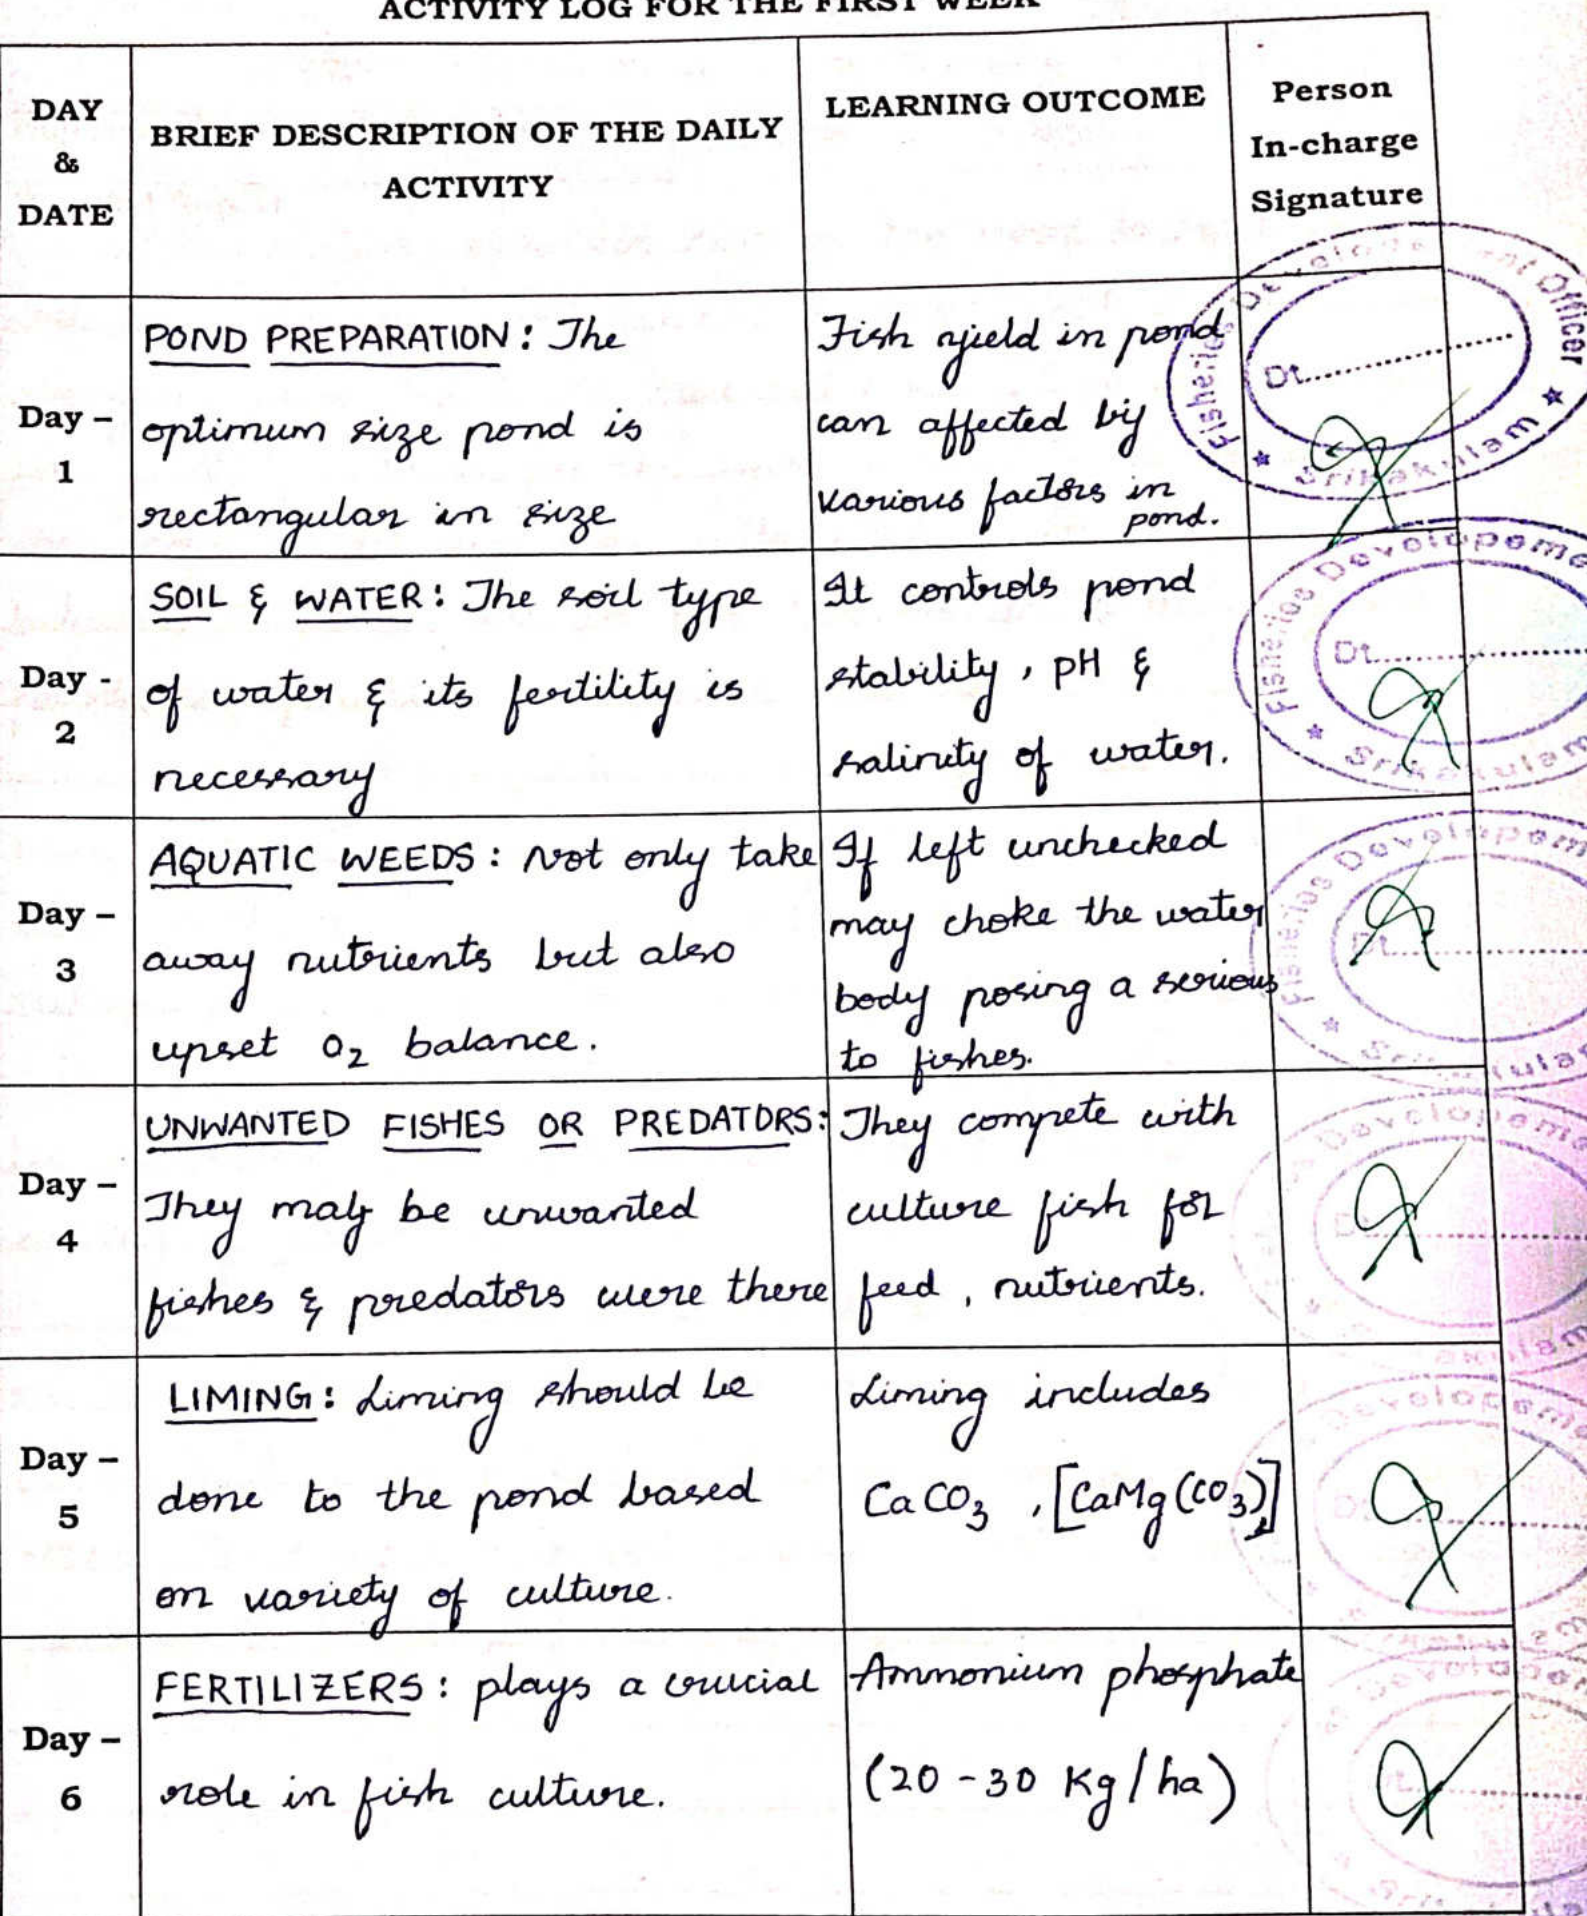 ACTIVITY LOG FOR THE FIRST WEEK
DAY
&
DATE
BRIEF DESCRIPTION OF THE DAILY
ACTIVITY
LEARNING OUTCOME
Person
In-charge
Signature
Day –
1
POND PREPARATION : The
optimum size pond is
rectangular in size
Fish yield in pond
can affected by
various factors in
pond.
Fisheries Development Officer
Dt..................
★ Srikakulam ★
Day -
2
SOIL & WATER : The soil type
of water & its fertility is
necessary
It controls pond
stability, pH &
salinity of water.
Fisheries Developeme
Dt..................
★ Srikakulam
Day –
3
AQUATIC WEEDS : Not only take
away nutrients but also
upset O₂ balance.
If left unchecked
may choke the water
body posing a serious
to fishes.
Fisheries Developem
Dt..................
★
Day –
4
UNWANTED FISHES OR PREDATORS:
They may be unwanted
fishes & predators were there
They compete with
culture fish for
feed, nutrients.
Developeme
Dt..................
Day –
5
LIMING : Liming should be
done to the pond based
on variety of culture.
Liming includes
CaCO₃ , [CaMg(CO₃)₂]
Developeme
Dt..................
Day –
6
FERTILIZERS : plays a crucial
role in fish culture.
Ammonium phosphate
(20 - 30 Kg/ha)